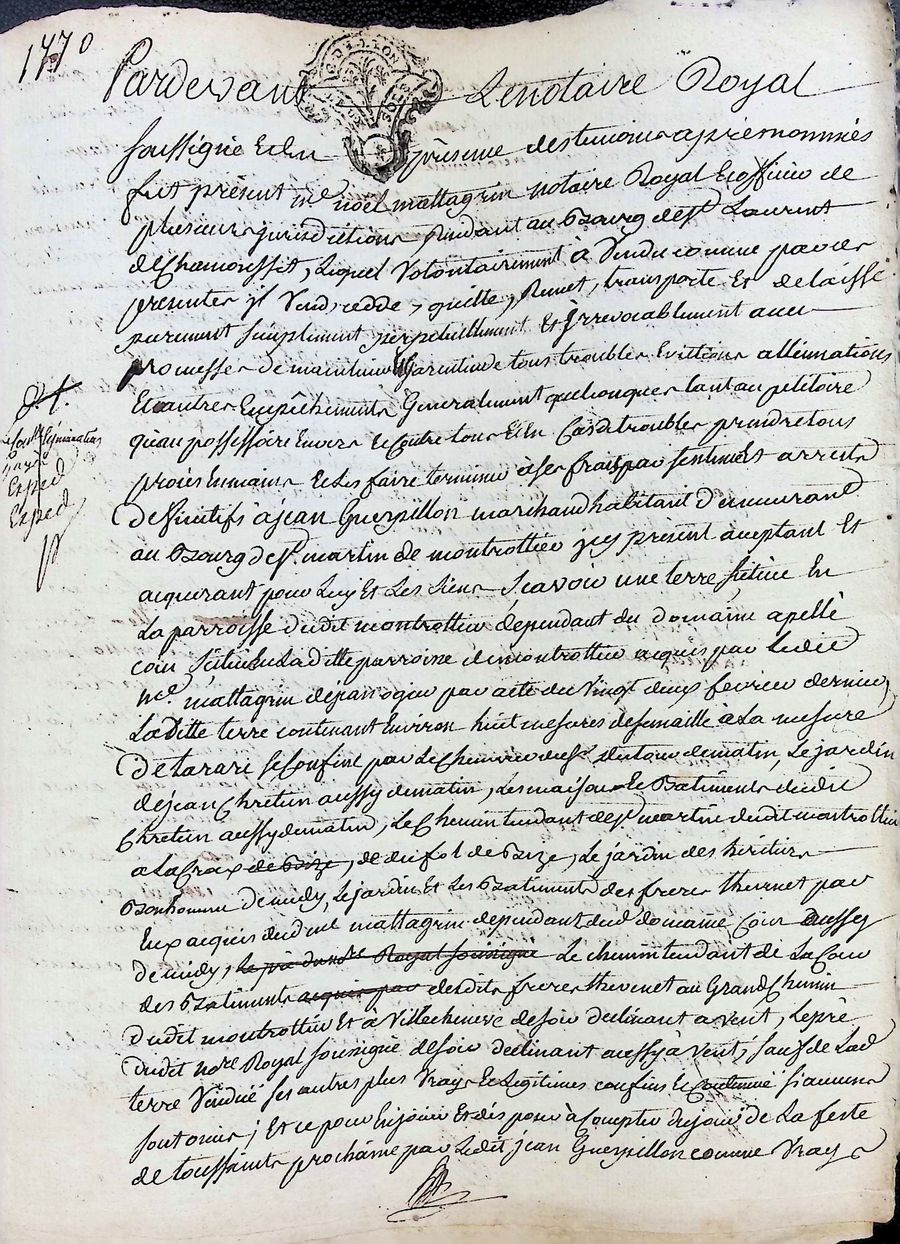 1770
Pardevant Le notaire Royal
soussigné et en présence des temoins aprés nommés
fut présent me noël mattagrin notaire Royal et officier de
plusieurs jurisdictions Residant au Bourg de st Laurent
de Chamousset, Lequel volontairement à vendu comme par ces
presentes il vend, cedde, quitte, Remet, transporte et delaisse
purement simplement perpetuellement et jrrevocablement avec
promesses de maintenue Garentie de tous troubles Evictions alliennations
Et autres Empêchements Generalement quelconques tant au petitoire
qu'au possessoire Envers et contre tous et En Cas de troubles prendre tous
procés En mains et Les faire terminer à ses frais par sentence et arrests
deffinitifs à jean Guerpillon marchand habitant demeurant
au Bourg de st martin de montrottier jcy présent aceptant et
acquerant pour Luy et Les siens sçavoir une terre sittüee En
La parroisse dudit montrottier dependant du domaine apellé
coin sittué En La ditte parroisse de montrottier acquis par Ledit
me mattagrin de jean ogier par acte du vingt deux fevrier dernier,
La ditte terre contenant Environ huit mesures de semaille à La mesure
de tarare se Confine par Le Chemin du matin, Le jardin
de jean Chretien aussy de matin, Les maisons et Batiments dudit
Chretien aussy de matin, Le Chemin tendant de st martin dudit montrottier
a La Croix de Bize, de du sol de Bize, Le jardin des heritiers
Bonhomme de midy, Le jardin Et Les Batiments des freres thevenet par
Eux acquis dud me mattagrin dependant dud domaine Coin aussy
de midy, Le pré du notre Royal soussigné Le chemin tendant de La Cour
des Batiments acquis par desdits freres thevenet au Grand Chemin
dudit montrottier Et à villecheneve de soir declinant a vent, Le pré
dudit notre Royal soussigné de soir declinant aussy à vent, sauf de Lad
terre vendüe ses autres plus vrays et Legitimes confins et Contenüe si aucuns
sont omis; Et ce pour En jouir Et dés pour à Compter du jour de La feste
de toussaints prochaine par Ledit jean Guerpillon comme vray
d. f.
Exped
Exped